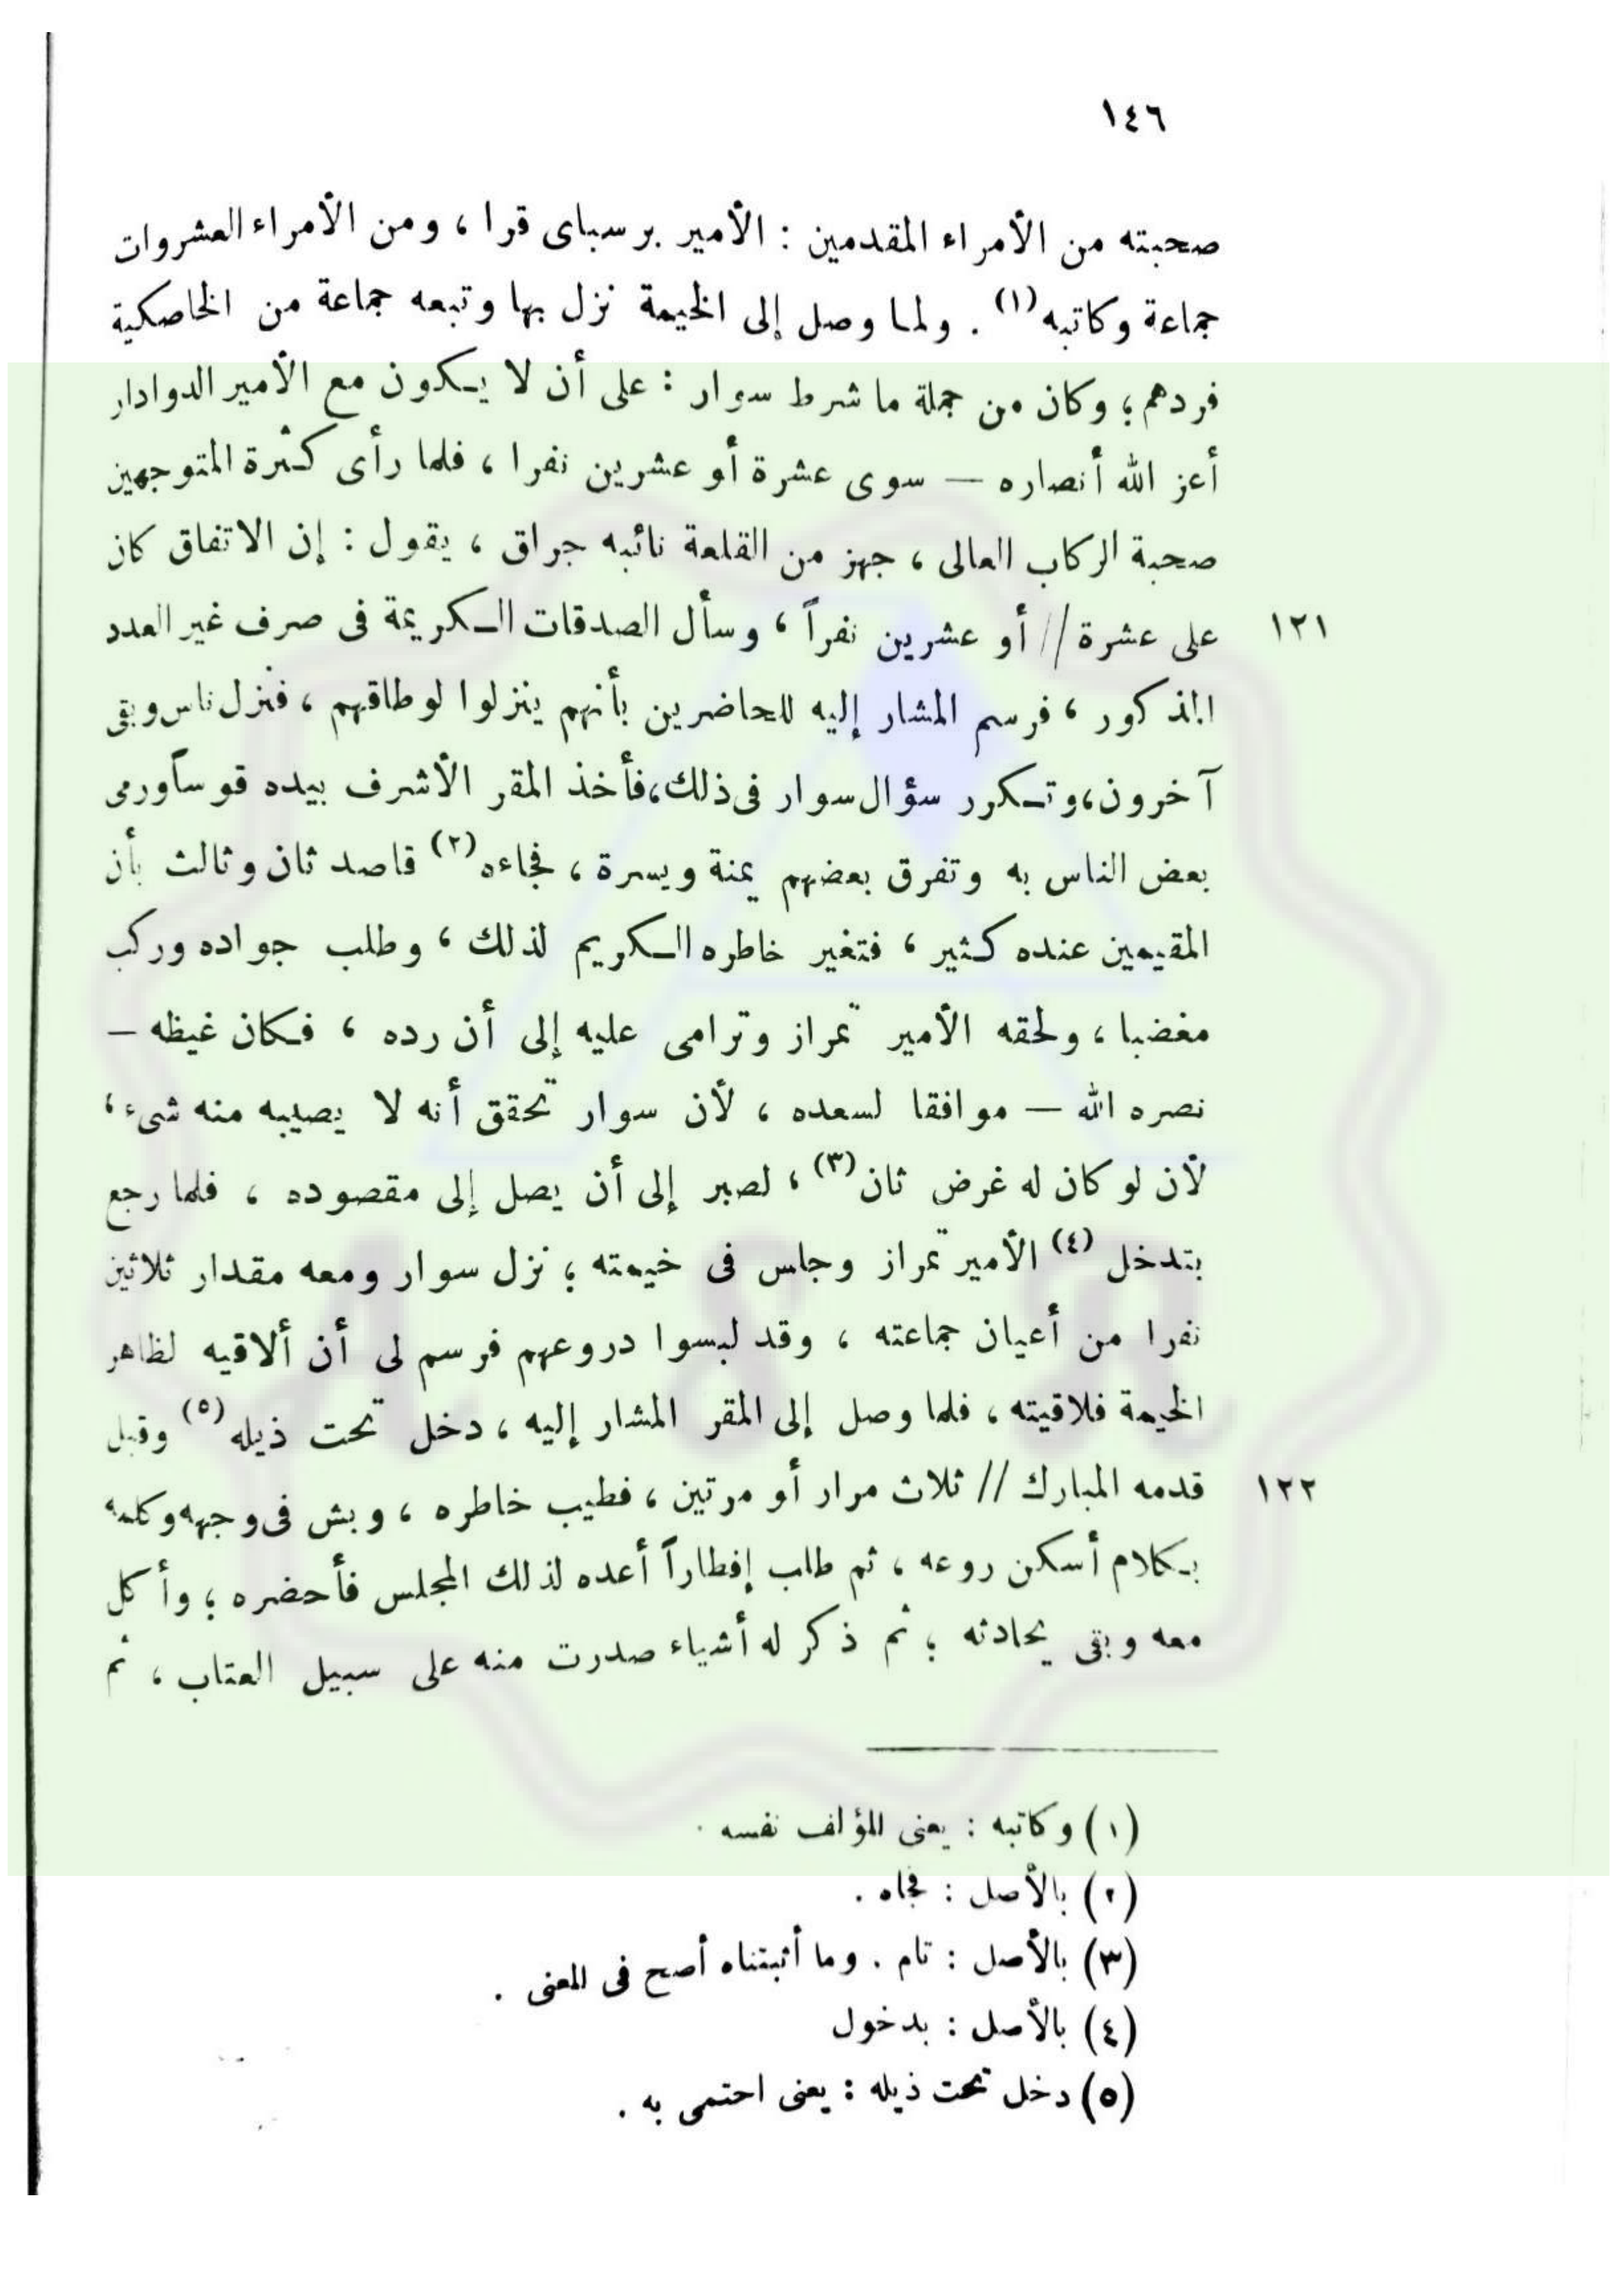 ١٤٦
صحبته من الأمراء المقدمين : الأمير برسباى قرا ، ومن الأمراء العشروات
جماعة وكاتبه (١) . ولما وصل إلى الخيمة نزل بها وتبعه جماعة من الخاصكية
فردهم ؛ وكان من جملة ما شرط سوار : على أن لا يكون مع الأمير الدوادار
أعز الله أنصاره — سوى عشرة أو عشرين نفرا ، فلما رأى كثرة المتوجهين
صحبة الركاب العالى ، جهز من القلعة نائبه جراق ، يقول : إن الاتفاق كان
على عشرة // أو عشرين نفراً ، وسأل الصدقات الكريمة فى صرف غير العدد ١٢١
المذكور ، فرسم المشار إليه للحاضرين بأنهم ينزلوا لوطاقهم ، فنزل ناس وبقى
آخرون، وتكرر سؤال سوار فى ذلك، فأخذ المقر الأشرف بيده قوساً ورمى
بعض الناس به وتفرق بعضهم يمنة ويسرة ، فجاءه (٢) قاصد ثان وثالث بأن
المقيمين عنده كثير ، فتغير خاطره الكريم لذلك ، وطلب جواده وركب
مغضبا ، ولحقه الأمير تمراز وترامى عليه إلى أن رده ، فكان غيظه —
نصره الله — موافقا لسعده ، لأن سوار تحقق أنه لا يصيبه منه شىء ،
لأن لو كان له غرض ثان (٣) ، لصبر إلى أن يصل إلى مقصوده ، فلما رجع
بتدخل (٤) الأمير تمراز وجلس فى خيمته ؛ نزل سوار ومعه مقدار ثلاثين
نفرا من أعيان جماعته ، وقد لبسوا دروعهم فرسم لى أن ألاقيه لظاهر
الخيمة فلاقيته ، فلما وصل إلى المقر المشار إليه ، دخل تحت ذيله (٥) وقبل
قدمه المبارك // ثلاث مرار أو مرتين ، فطيب خاطره ، وبش فى وجهه وكلمه ١٢٢
بكلام أسكن روعه ، ثم طلب إفطاراً أعده لذلك المجلس فأحضره ؛ وأكل
معه وبقى يحادثه ؛ ثم ذكر له أشياء صدرت منه على سبيل العتاب ، ثم
(١) وكاتبه : يعنى المؤلف نفسه .
(٢) بالأصل : فجاه .
(٣) بالأصل : تام . وما أثبتناه أصح فى المعنى .
(٤) بالأصل : بدخول
(٥) دخل تحت ذيله : يعنى احتمى به .